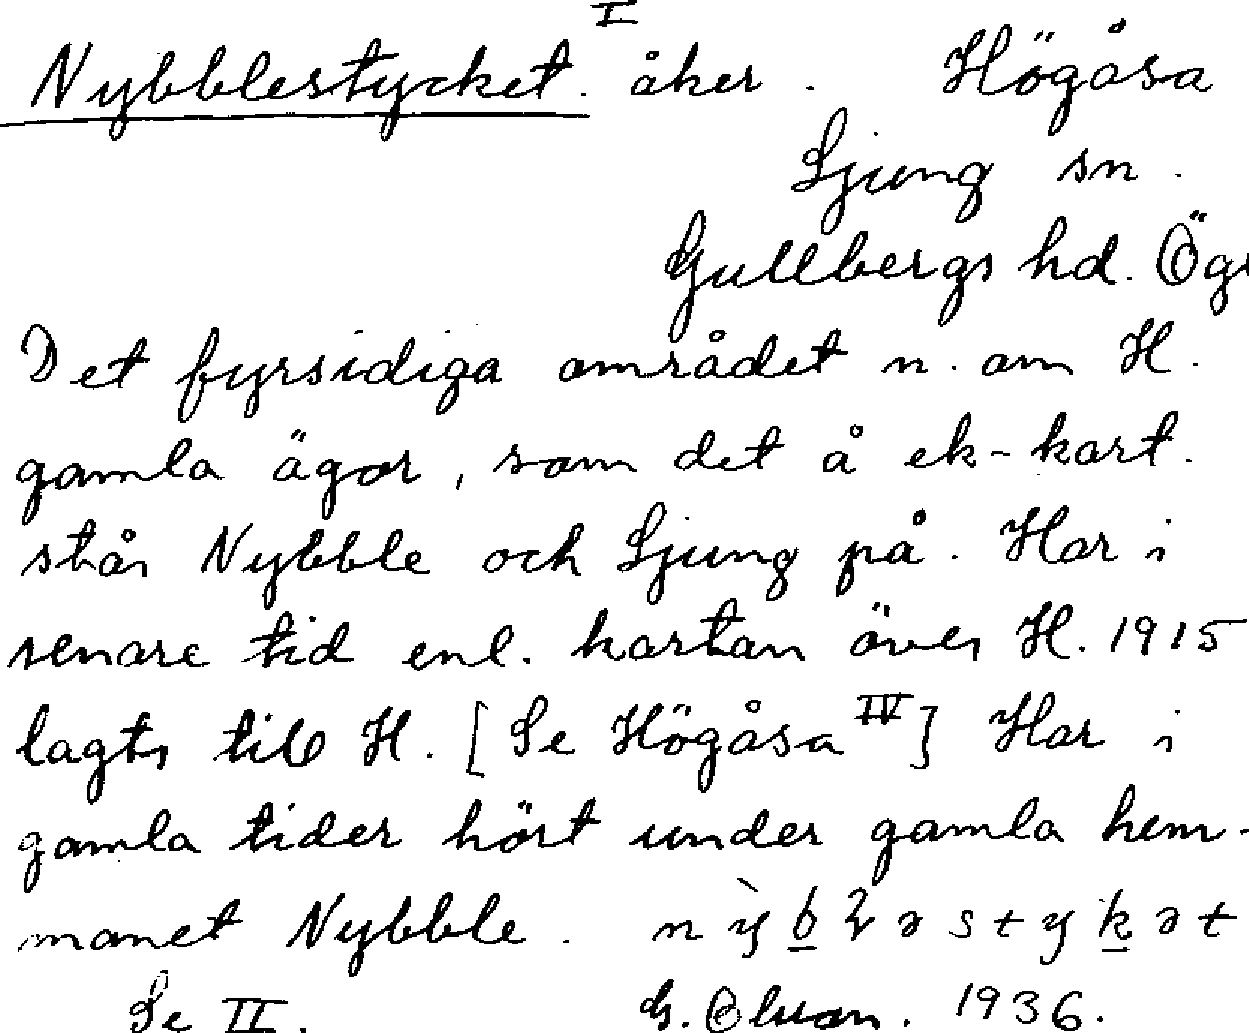 I
Nybblestycket. åker. Högåsa
Ljung sn.
Gullbergs hd. Ög
Det fyrsidiga området n. om H.
gamla ägor, som det å ek-kart.
står Nybble och Ljung på. Har i
senare tid enl. kartan över H. 1915
lagts till H. [Se Högåsa IV] Har i
gamla tider hört under gamla hem-
manet Nybble. 
Se II. G. 1936.